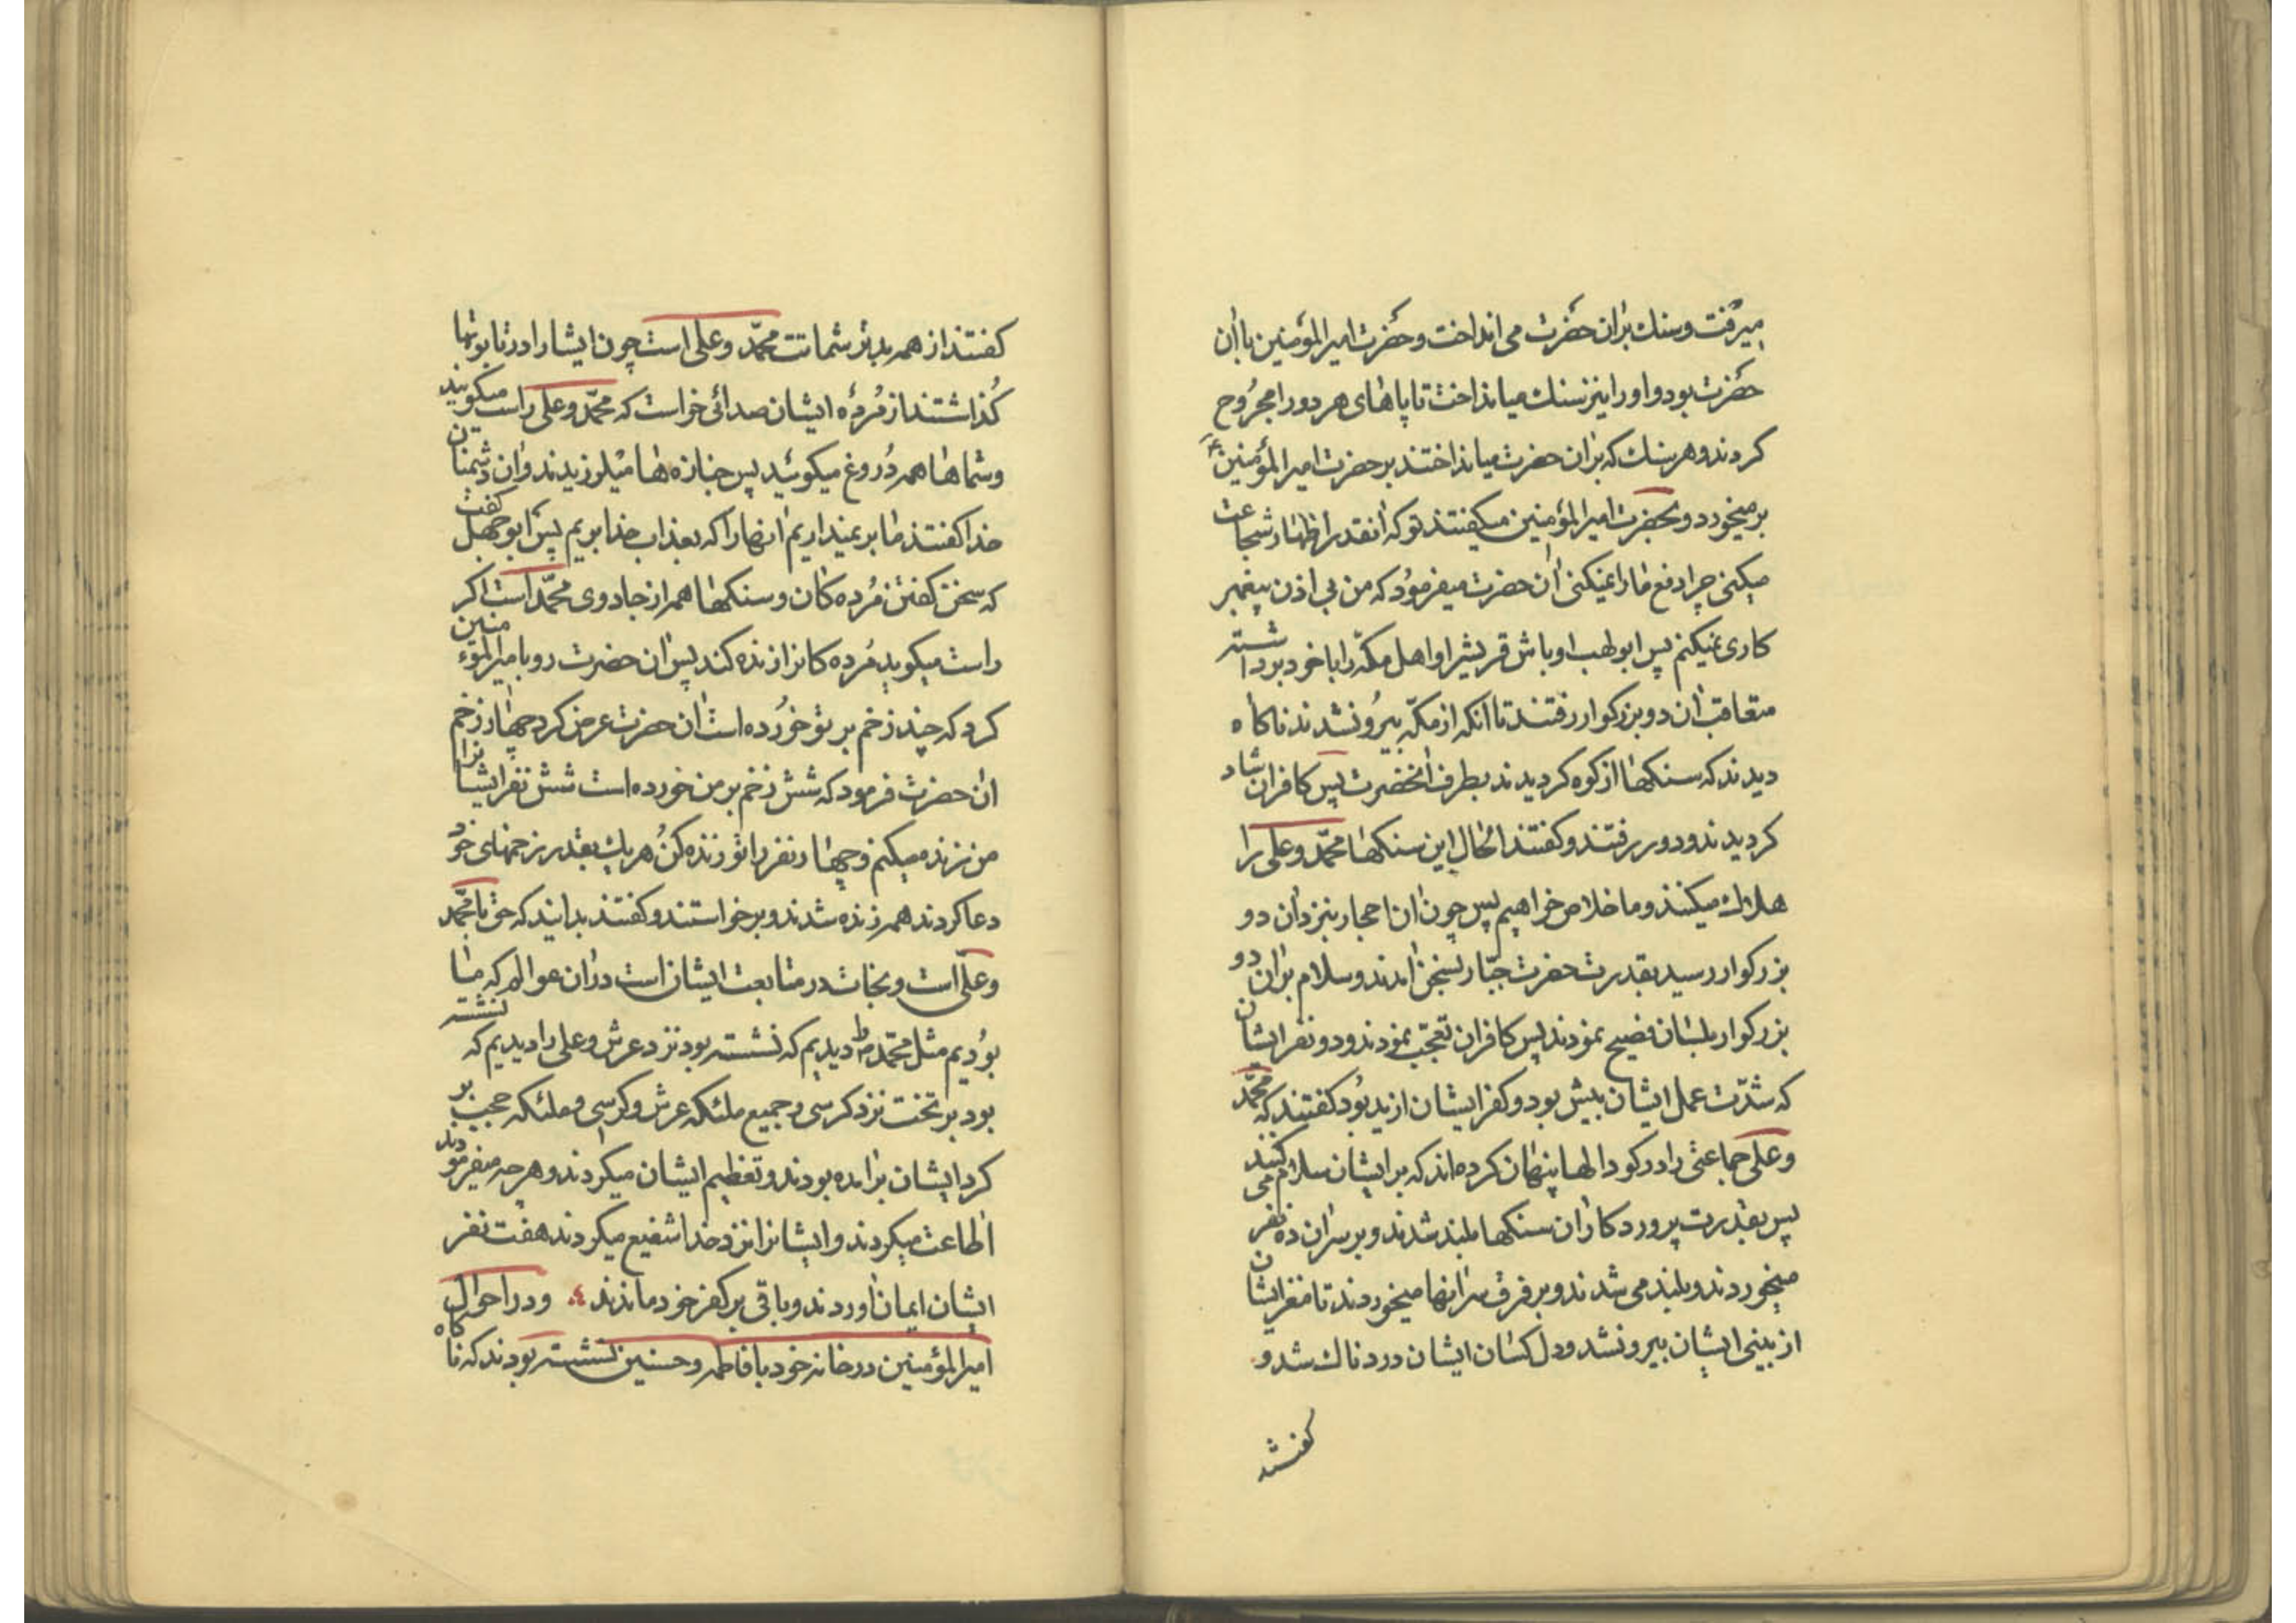 میرفت و سنك بران حضرت می انداخت و حضرت امیر المؤمنین با ان
حضرت بود و او را نیز سنك میانداخت تا پاهای هر دو را مجروح
کردند و هر سنك که بران حضرت میانداختند بر حضرت امیر المؤمنینؑ
بر میخورد و بحضرت امیر المؤمنین میکفتند تو که انقدر اظهار شجاعت
میکنی چرا دفع ما را نمیکنی ان حضرت میفرمود که من بی اذن پیغمبر
کاری نمیکنم پس ابو لهب اوباش قریش را و اهل مکّه را با خود برداشته
متعاقب ان دو بزرکوار رفتند تا انکه از مکّه بیرو نشدند ناکاه
دیدند که سنکها از کوه کردیدند بطرف انحضرت پس کافران شاد
کردیدند و دور رفتند و کفتند الحال این سنکها محمّد و علی را
هلاك میکنند و ما خلاص خواهیم پس چون ان احجار بنزد ان دو
بزرکوار رسید بقدرت حضرت جبّار بسخن امدند و سلام بران دو
بزرکوار بلسان فصیح نمودند پس کافران تعجّب نمودند و دو نفر ایشان
که شدّت عمل ایشان بیش بود و کفر ایشان ازید بود کفتند که محمّد
و علی جماعتی را در کودالها پنهان کرده اند که بر ایشان سلام می کنند
پس بقدرت پروردکار ان سنکها بلند شدند و بر سر ان ده نفر
میخوردند و بلند می شدند و بر فرق سر انها میخوردند تا مغز ایشان
از بینی ایشان بیرو نشد و دل کسان ایشان دردناك شد و
کفتند از همه بدتر شماتت محمّد و علی است چون ایشانرا در تابوتها
کذاشتند از مُردۀ ایشان صدائی خواست که محمّد و علی راست میکویند
و شماها همه دُروغ میکوئید پس جنازه ها میلرزیدند و ان دشمنان
خدا کفتند ما بر نمیداریم انها را که بعذاب خدا بریم پس ابو جهل کفت
که سخن کفتن مُرده کان و سنکها همه از جادوی محمّد است اکر
راست میکوید مُرده کانرا زنده کند پس ان حضرت رو بامیر المؤمنین
کرد که چند زخم بر تو خورده است ان حضرت عرض کرد چهار زخم
ان حضرت فرمود که شش زخم بر من خورده است شش نفر ایشانرا
من زنده میکنم و چهار نفر را تو زنده کن هر یك بقدر زخمهای خود
دعا کردند همه زنده شدند و برخواستند و کفتند بدانید که حق با محمّد
و علی است و نجات در متابعت ایشان است در ان عوالم که ما
بودیم مثل محمّد را دیدیم که نشسته بود نزد عرش و علی را دیدیم که نشسته
بود بر تخت نزد کرسی و جمیع ملئکه عرش و کرسی و ملئکه حجب بر
کرد ایشان برامده بودند و تعظیم ایشان میکردند و هر چه میفرمودند
اطاعت میکردند و ایشانرا نزد خدا شفیع میکردند هفت نفر
ایشان ایمان اوردند و باقی بر کفر خود ماندند و در احوال
امیر المؤمنین در خانه خود با فاطمه و حسنین نشسته بودند که ناکاه